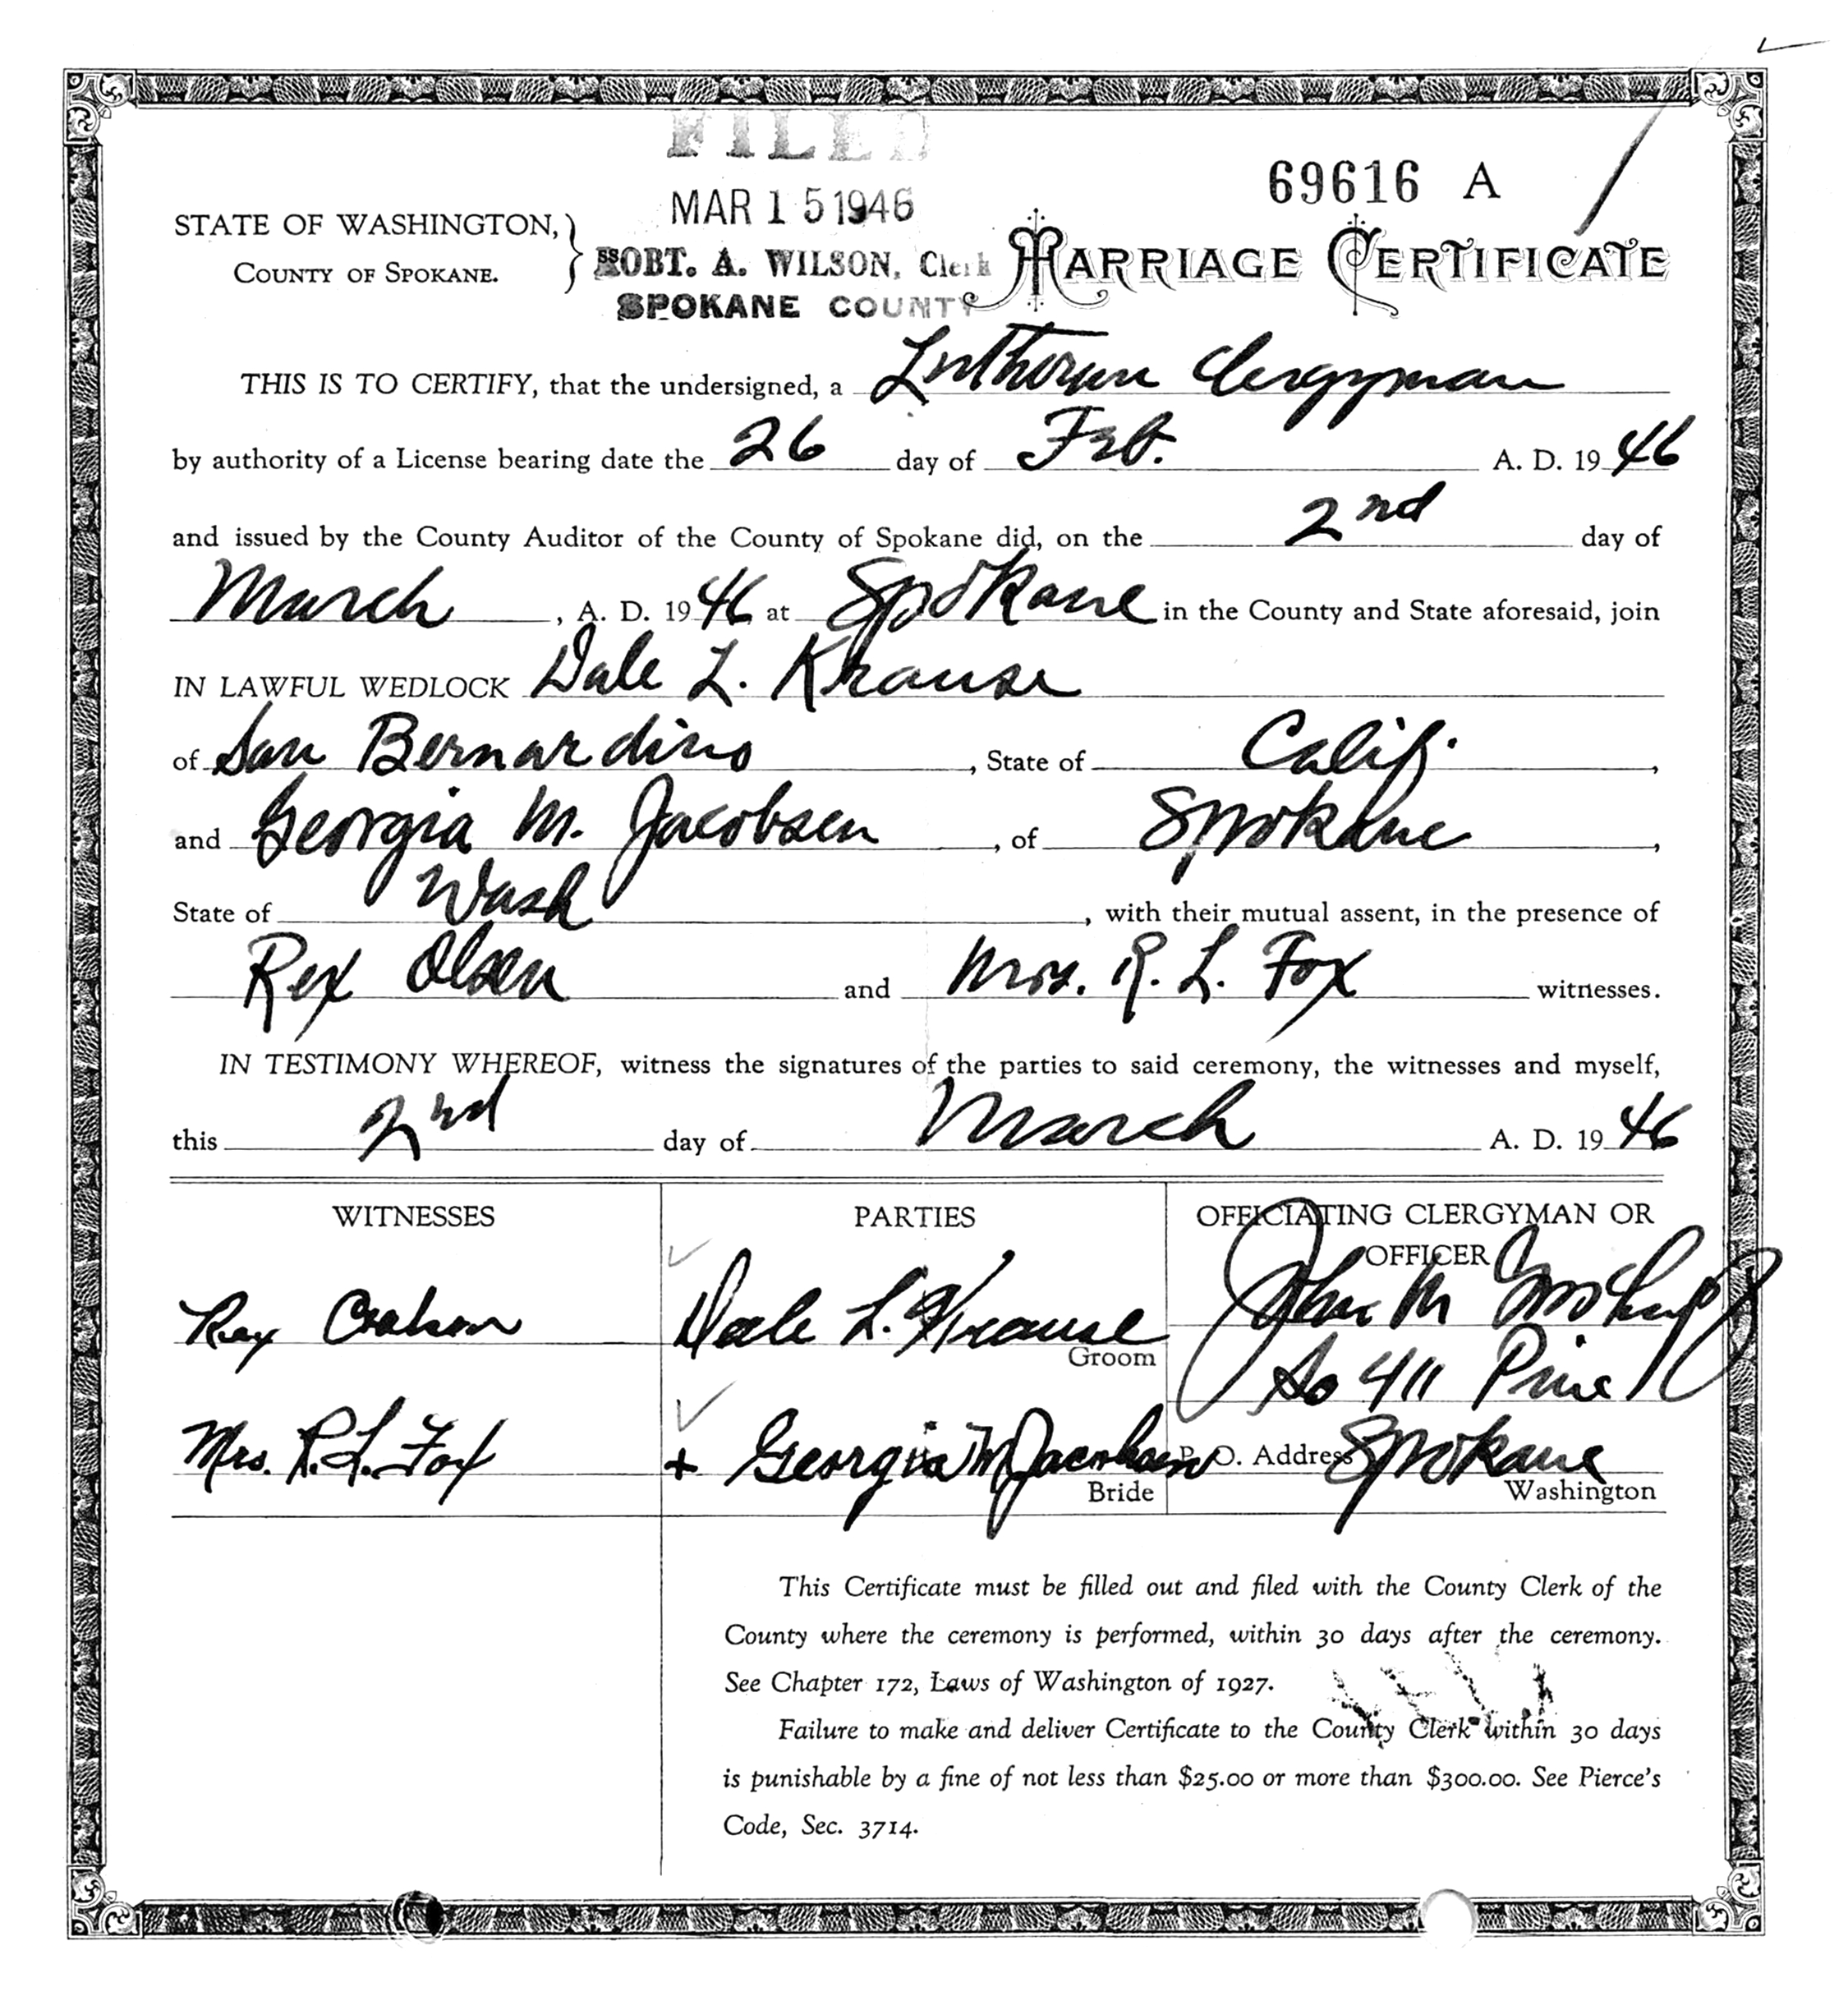 FILED
69616 A
MAR 15 1946
STATE OF WASHINGTON,
COUNTY OF SPOKANE.
ss
ROBT. A. WILSON, Clerk
SPOKANE COUNTY
MARRIAGE CERTIFICATE
THIS IS TO CERTIFY, that the undersigned, a Lutheran Clergyman
by authority of a License bearing date the 26 day of Feb. A. D. 19 46
and issued by the County Auditor of the County of Spokane did, on the 2nd day of
March, A. D. 19 46 at Spokane in the County and State aforesaid, join
IN LAWFUL WEDLOCK Dale L. Krause
of San Bernardino, State of Calif.,
and Georgia M. Jacobsen, of Spokane,
State of Wash, with their mutual assent, in the presence of
Rex Olsen and Mrs. R. L. Fox witnesses.
IN TESTIMONY WHEREOF, witness the signatures of the parties to said ceremony, the witnesses and myself,
this 2nd day of March A. D. 19 46
WITNESSES PARTIES OFFICIATING CLERGYMAN OR
OFFICER
Dale L. Krause John M
Groom
So 411 Pine
Mrs. R. L. Fox + Georgia M Jacobsen P. O. Address Spokane
Bride Washington
This Certificate must be filled out and filed with the County Clerk of the
County where the ceremony is performed, within 30 days after the ceremony.
See Chapter 172, Laws of Washington of 1927.
Failure to make and deliver Certificate to the County Clerk within 30 days
is punishable by a fine of not less than $25.00 or more than $300.00. See Pierce's
Code, Sec. 3714.